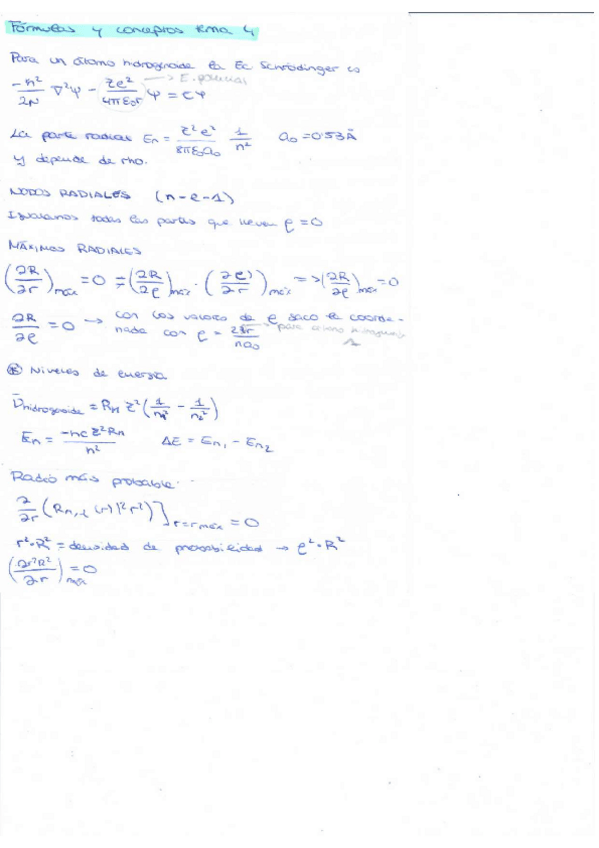 Fórmulas y conceptos tema 4
Para un átomo hidrogenoide la Ec Schrödinger es
-ħ²/2μ ∇²Ψ - Ze²/4πε₀r Ψ = EΨ → E. potencial
La parte radial En = Z²e²/8πε₀a₀ 1/n² a₀=0.53Å
y depende de rho.
NODOS RADIALES (n-l-1)
Igualamos todas las partes que lleven ρ=0
MÁXIMOS RADIALES
(∂R/∂r)máx = 0 = (∂R/∂ρ)máx · (∂ρ/∂r)máx => (∂R/∂ρ)máx = 0
∂R/∂ρ = 0 → con los valores de ρ saco la coorde-
nada con ρ = 2Zr/na₀ para átomo
Niveles de energía
ν̄hidrogenoide = R_H Z² (1/n₁² - 1/n₂²)
En = -hcZ²R_H/n² ΔE = En₁ - En₂
Radio más probable:
∂/∂r (Rn,l (r)|²r²)]r=rmáx = 0
r²·R² = densidad de probabilidad → ρ²·R²
(∂r²R²/∂r)máx = 0